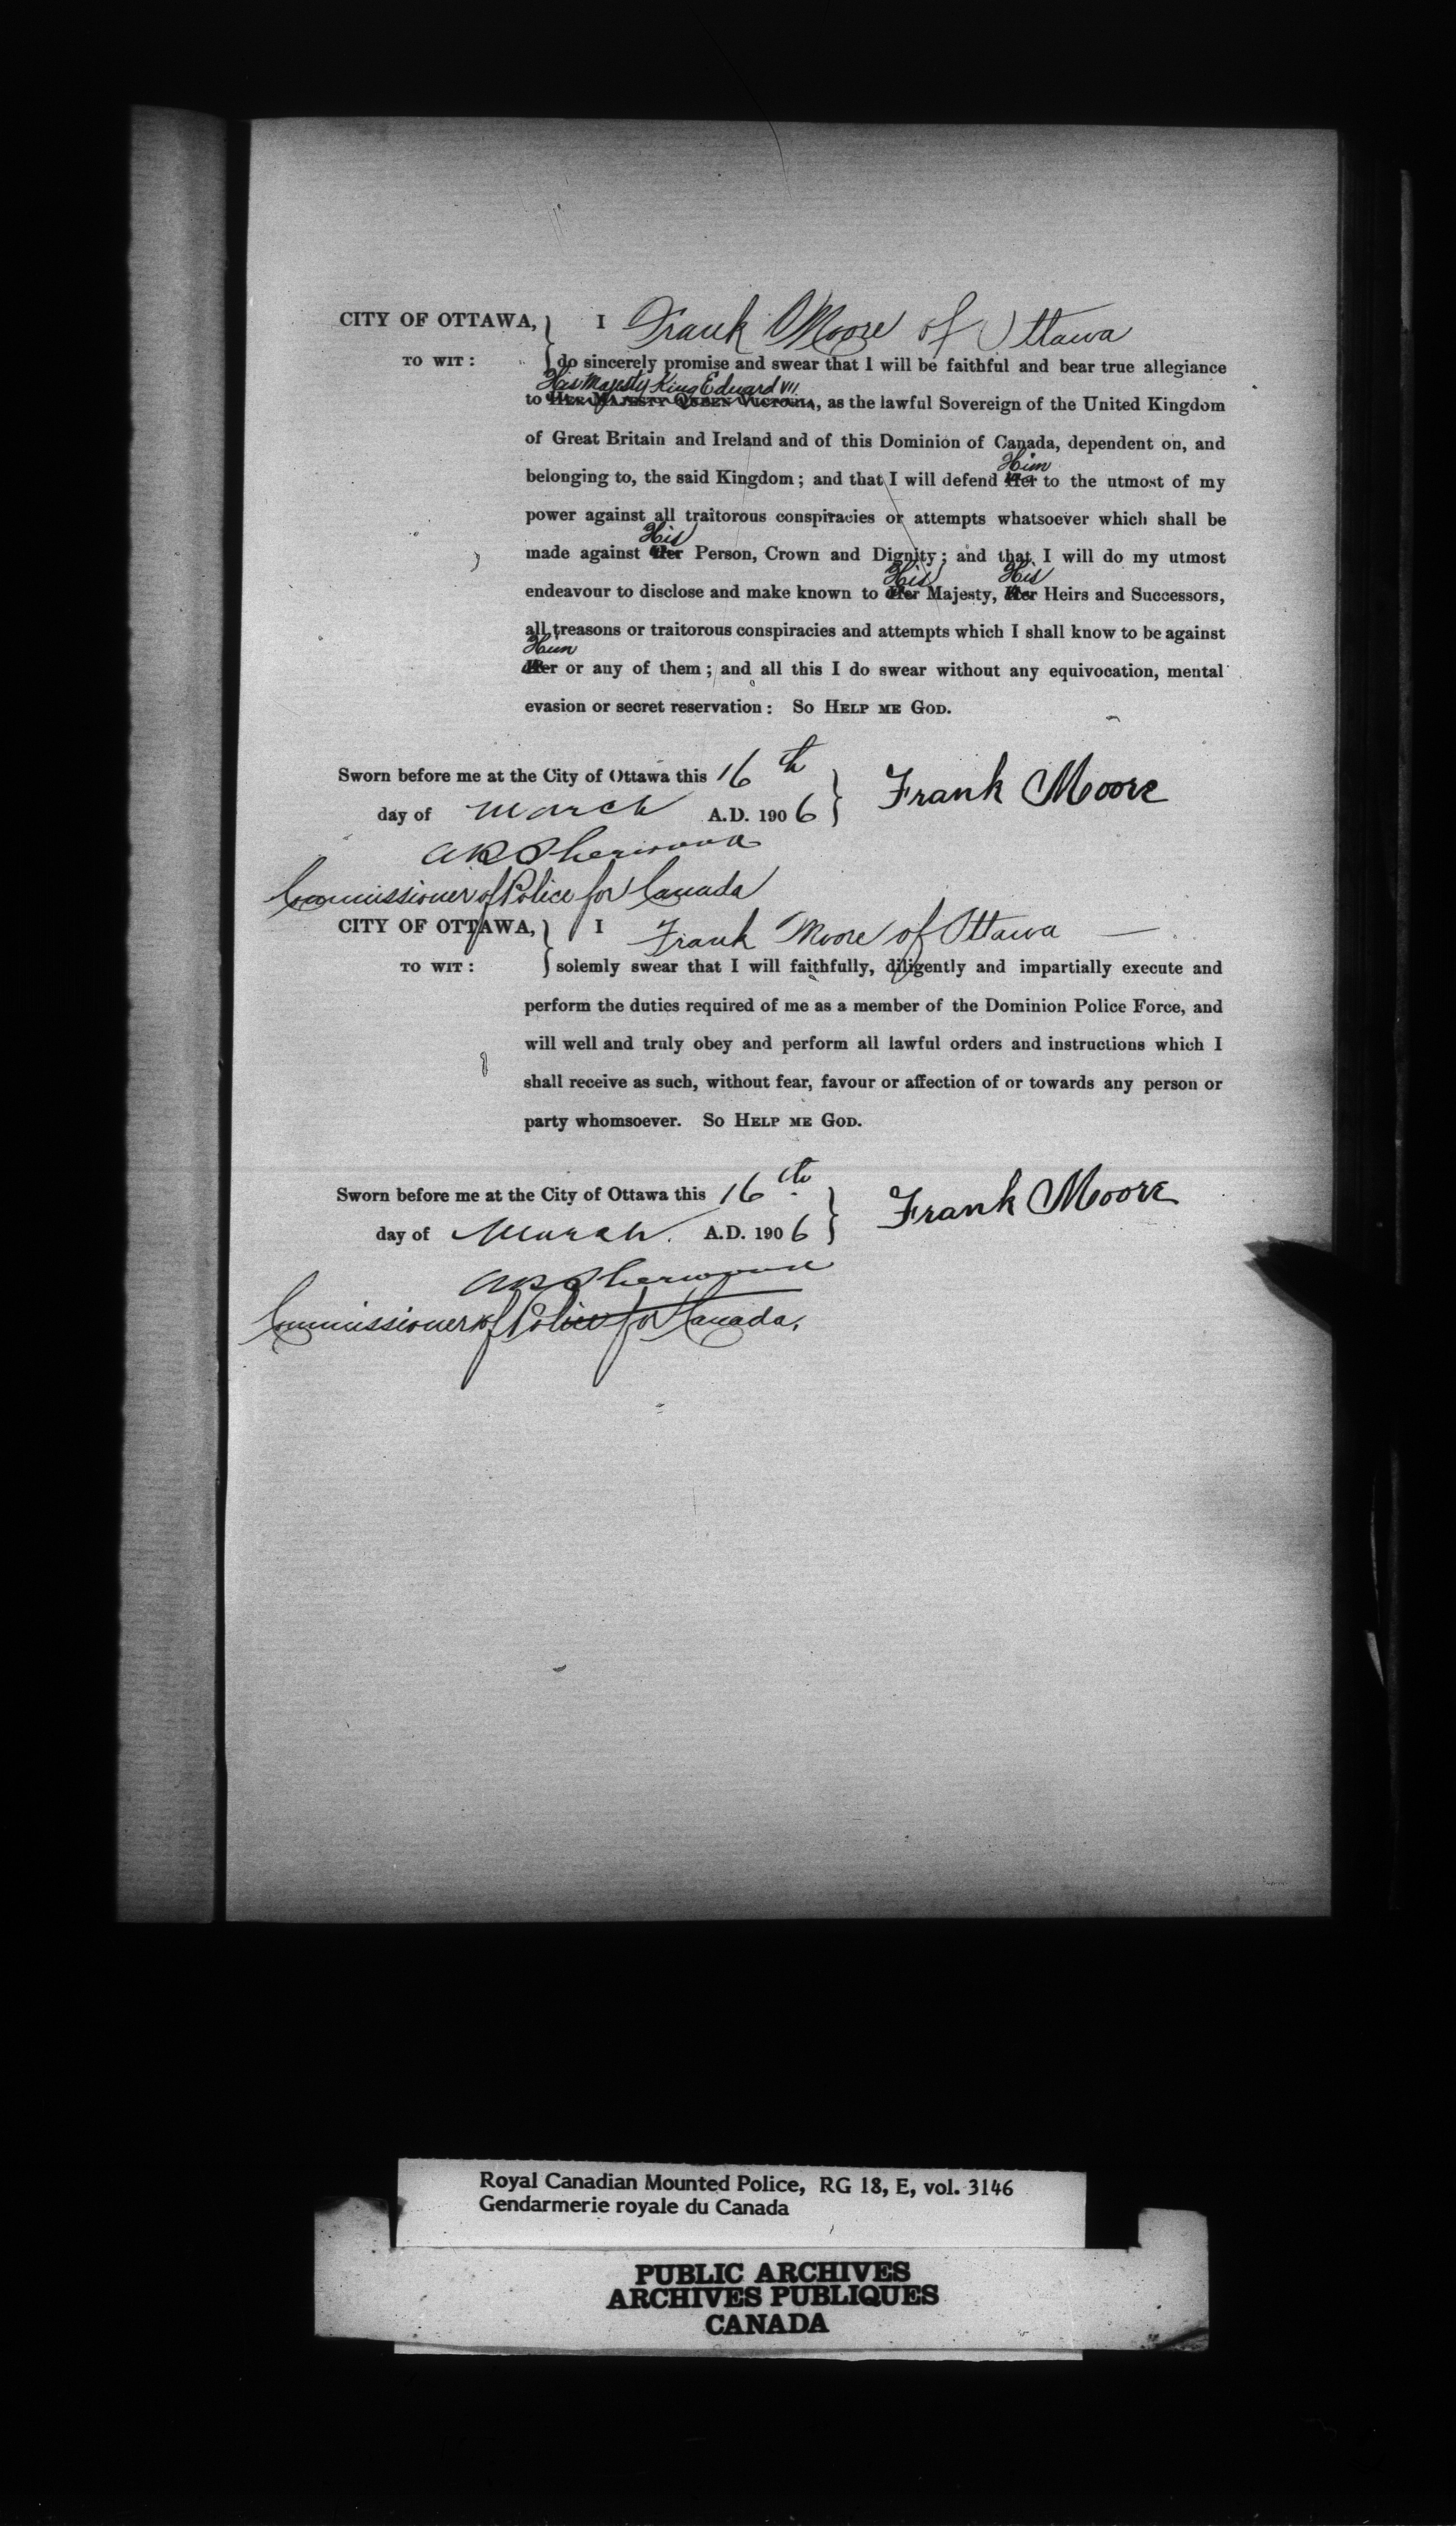 CITY OF OTTAWA, I Frank Moore of Ottawa
TO WIT : do sincerely promise and swear that I will be faithful and bear true allegiance
His Majesty King Edward VII
to HER MAJESTY QUEEN VICTORIA, as the lawful Sovereign of the United Kingdom
of Great Britain and Ireland and of this Dominion of Canada, dependent on, and
Him
belonging to, the said Kingdom ; and that I will defend Her to the utmost of my
power against all traitorous conspiracies or attempts whatsoever which shall be
His
made against Her Person, Crown and Dignity ; and that I will do my utmost
His His
endeavour to disclose and make known to Her Majesty, Her Heirs and Successors,
all treasons or traitorous conspiracies and attempts which I shall know to be against
Him
Her or any of them ; and all this I do swear without any equivocation, mental
evasion or secret reservation : SO HELP ME GOD.
Sworn before me at the City of Ottawa this 16th
day of March A.D. 1906 Frank Moore
AP Sherwood
Commissioner of Police for Canada
CITY OF OTTAWA, I Frank Moore of Ottawa —
TO WIT : solemly swear that I will faithfully, diligently and impartially execute and
perform the duties required of me as a member of the Dominion Police Force, and
will well and truly obey and perform all lawful orders and instructions which I
shall receive as such, without fear, favour or affection of or towards any person or
party whomsoever. SO HELP ME GOD.
Sworn before me at the City of Ottawa this 16th
day of March. A.D. 1906 Frank Moore
AP Sherwood
Commissioner of Police for Canada.
Royal Canadian Mounted Police, RG 18, E, vol. 3146
Gendarmerie royale du Canada
PUBLIC ARCHIVES
ARCHIVES PUBLIQUES
CANADA